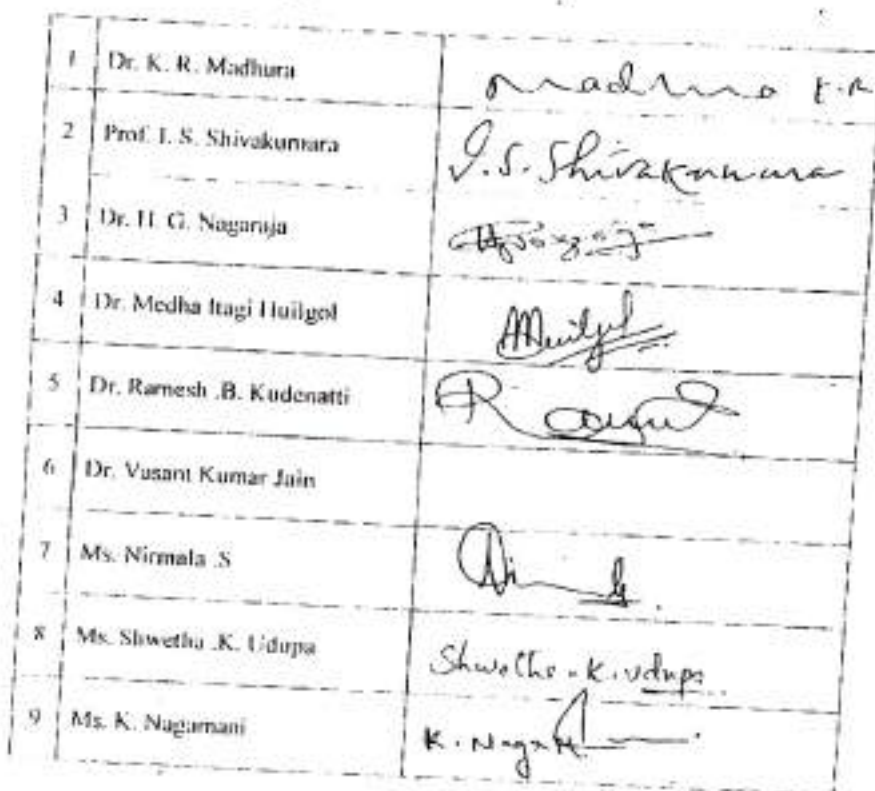 1 Dr. K. R. Madhura Madhura K.R
2 Prof. I. S. Shivakumara I.S. Shivakumara
3 Dr. H. G. Nagaraja
4 Dr. Medha Itagi Huilgol MHuilgol
5 Dr. Ramesh .B. Kudenatti
6 Dr. Vasant Kumar Jain
7 Ms. Nirmala .S
8 Ms. Shwetha .K. Udupa Shwetha.K.Udupa
9 Ms. K. Nagamani K.